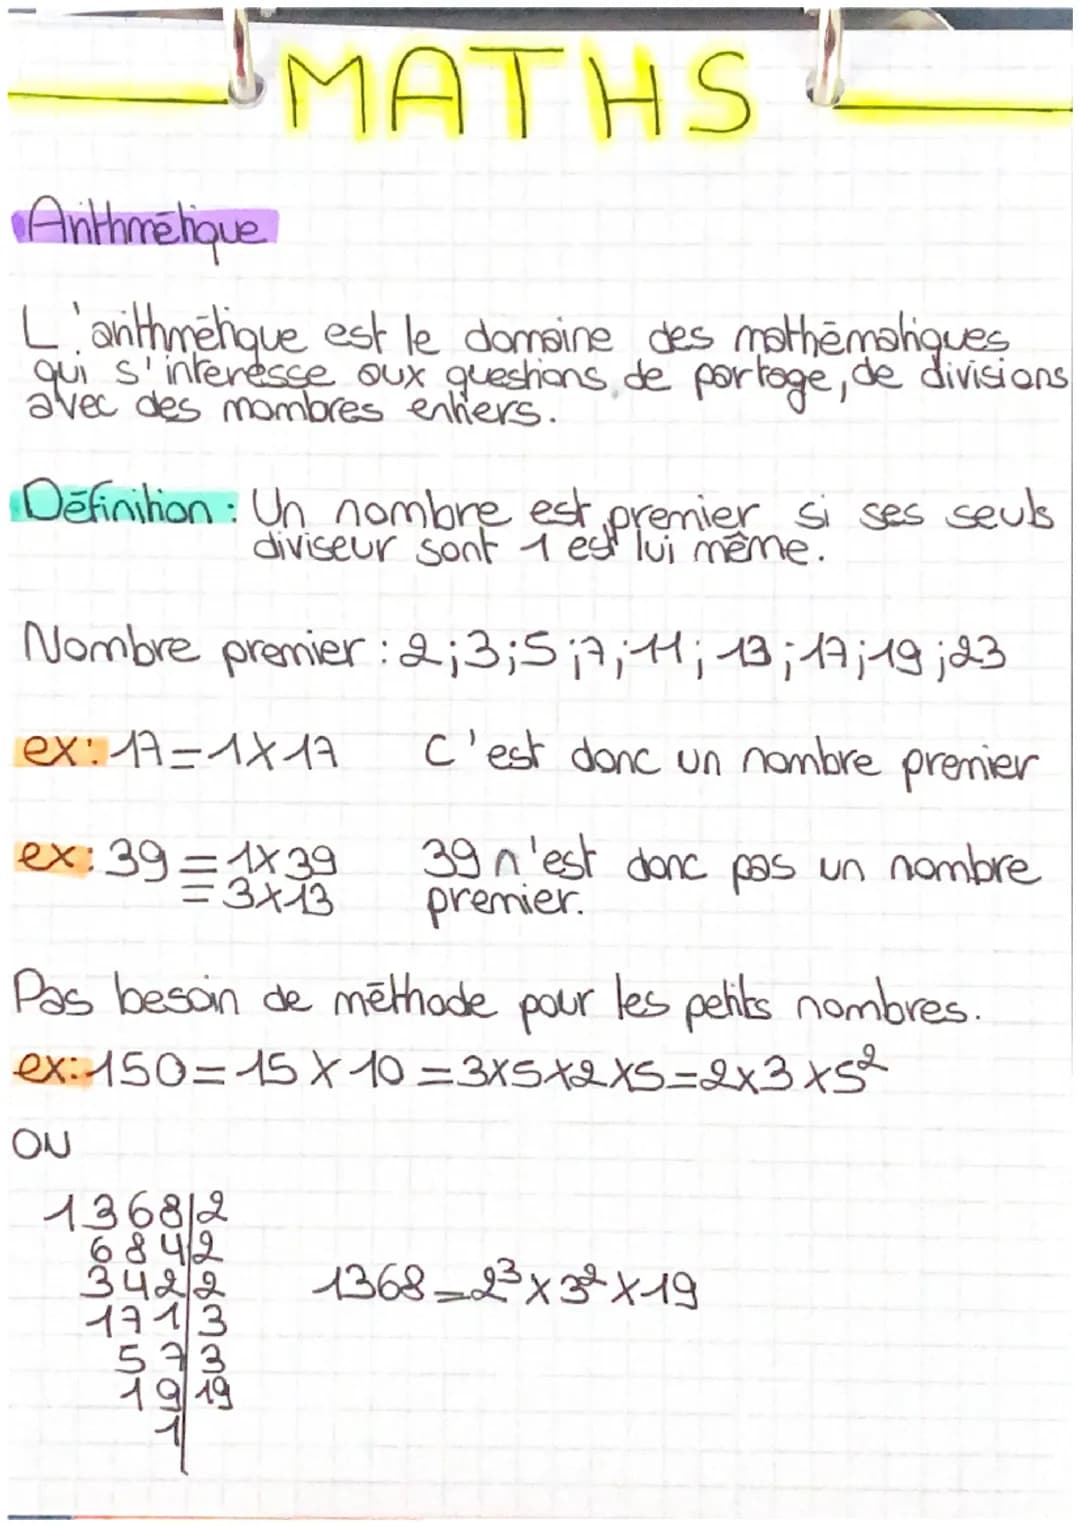 MATHS
Arithmétique
L'arithmétique est le domaine des mathématiques
qui s'interesse aux questions de partage, de divisions
avec des nombres entiers.
Définition : Un nombre est premier si ses seuls
diviseur sont 1 est lui même.
Nombre premier : 2 ; 3 ; 5 ; 7 ; 11 ; 13 ; 17 ; 19 ; 23
ex: 17 = 1 x 17 C'est donc un nombre premier
ex: 39 = 1 x 39 39 n'est donc pas un nombre
= 3 x 13 premier.
Pas besoin de méthode pour les petits nombres.
ex: 150 = 15 x 10 = 3x5x2x5 = 2x3x5²
OU
1368|2
684|2
342|2
171|3 1368 = 2³ x 3² x 19
57|3
19|19
1|